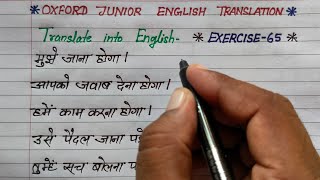 * OXFORD JUNIOR ENGLISH TRANSLATION *
Translate into English- * EXERCISE-65 *
मुझे जाना होगा।
आपको जवाब देना होगा।
हमें काम करना होगा।
उसे पैदल जाना
तुम्हें सच बोलना